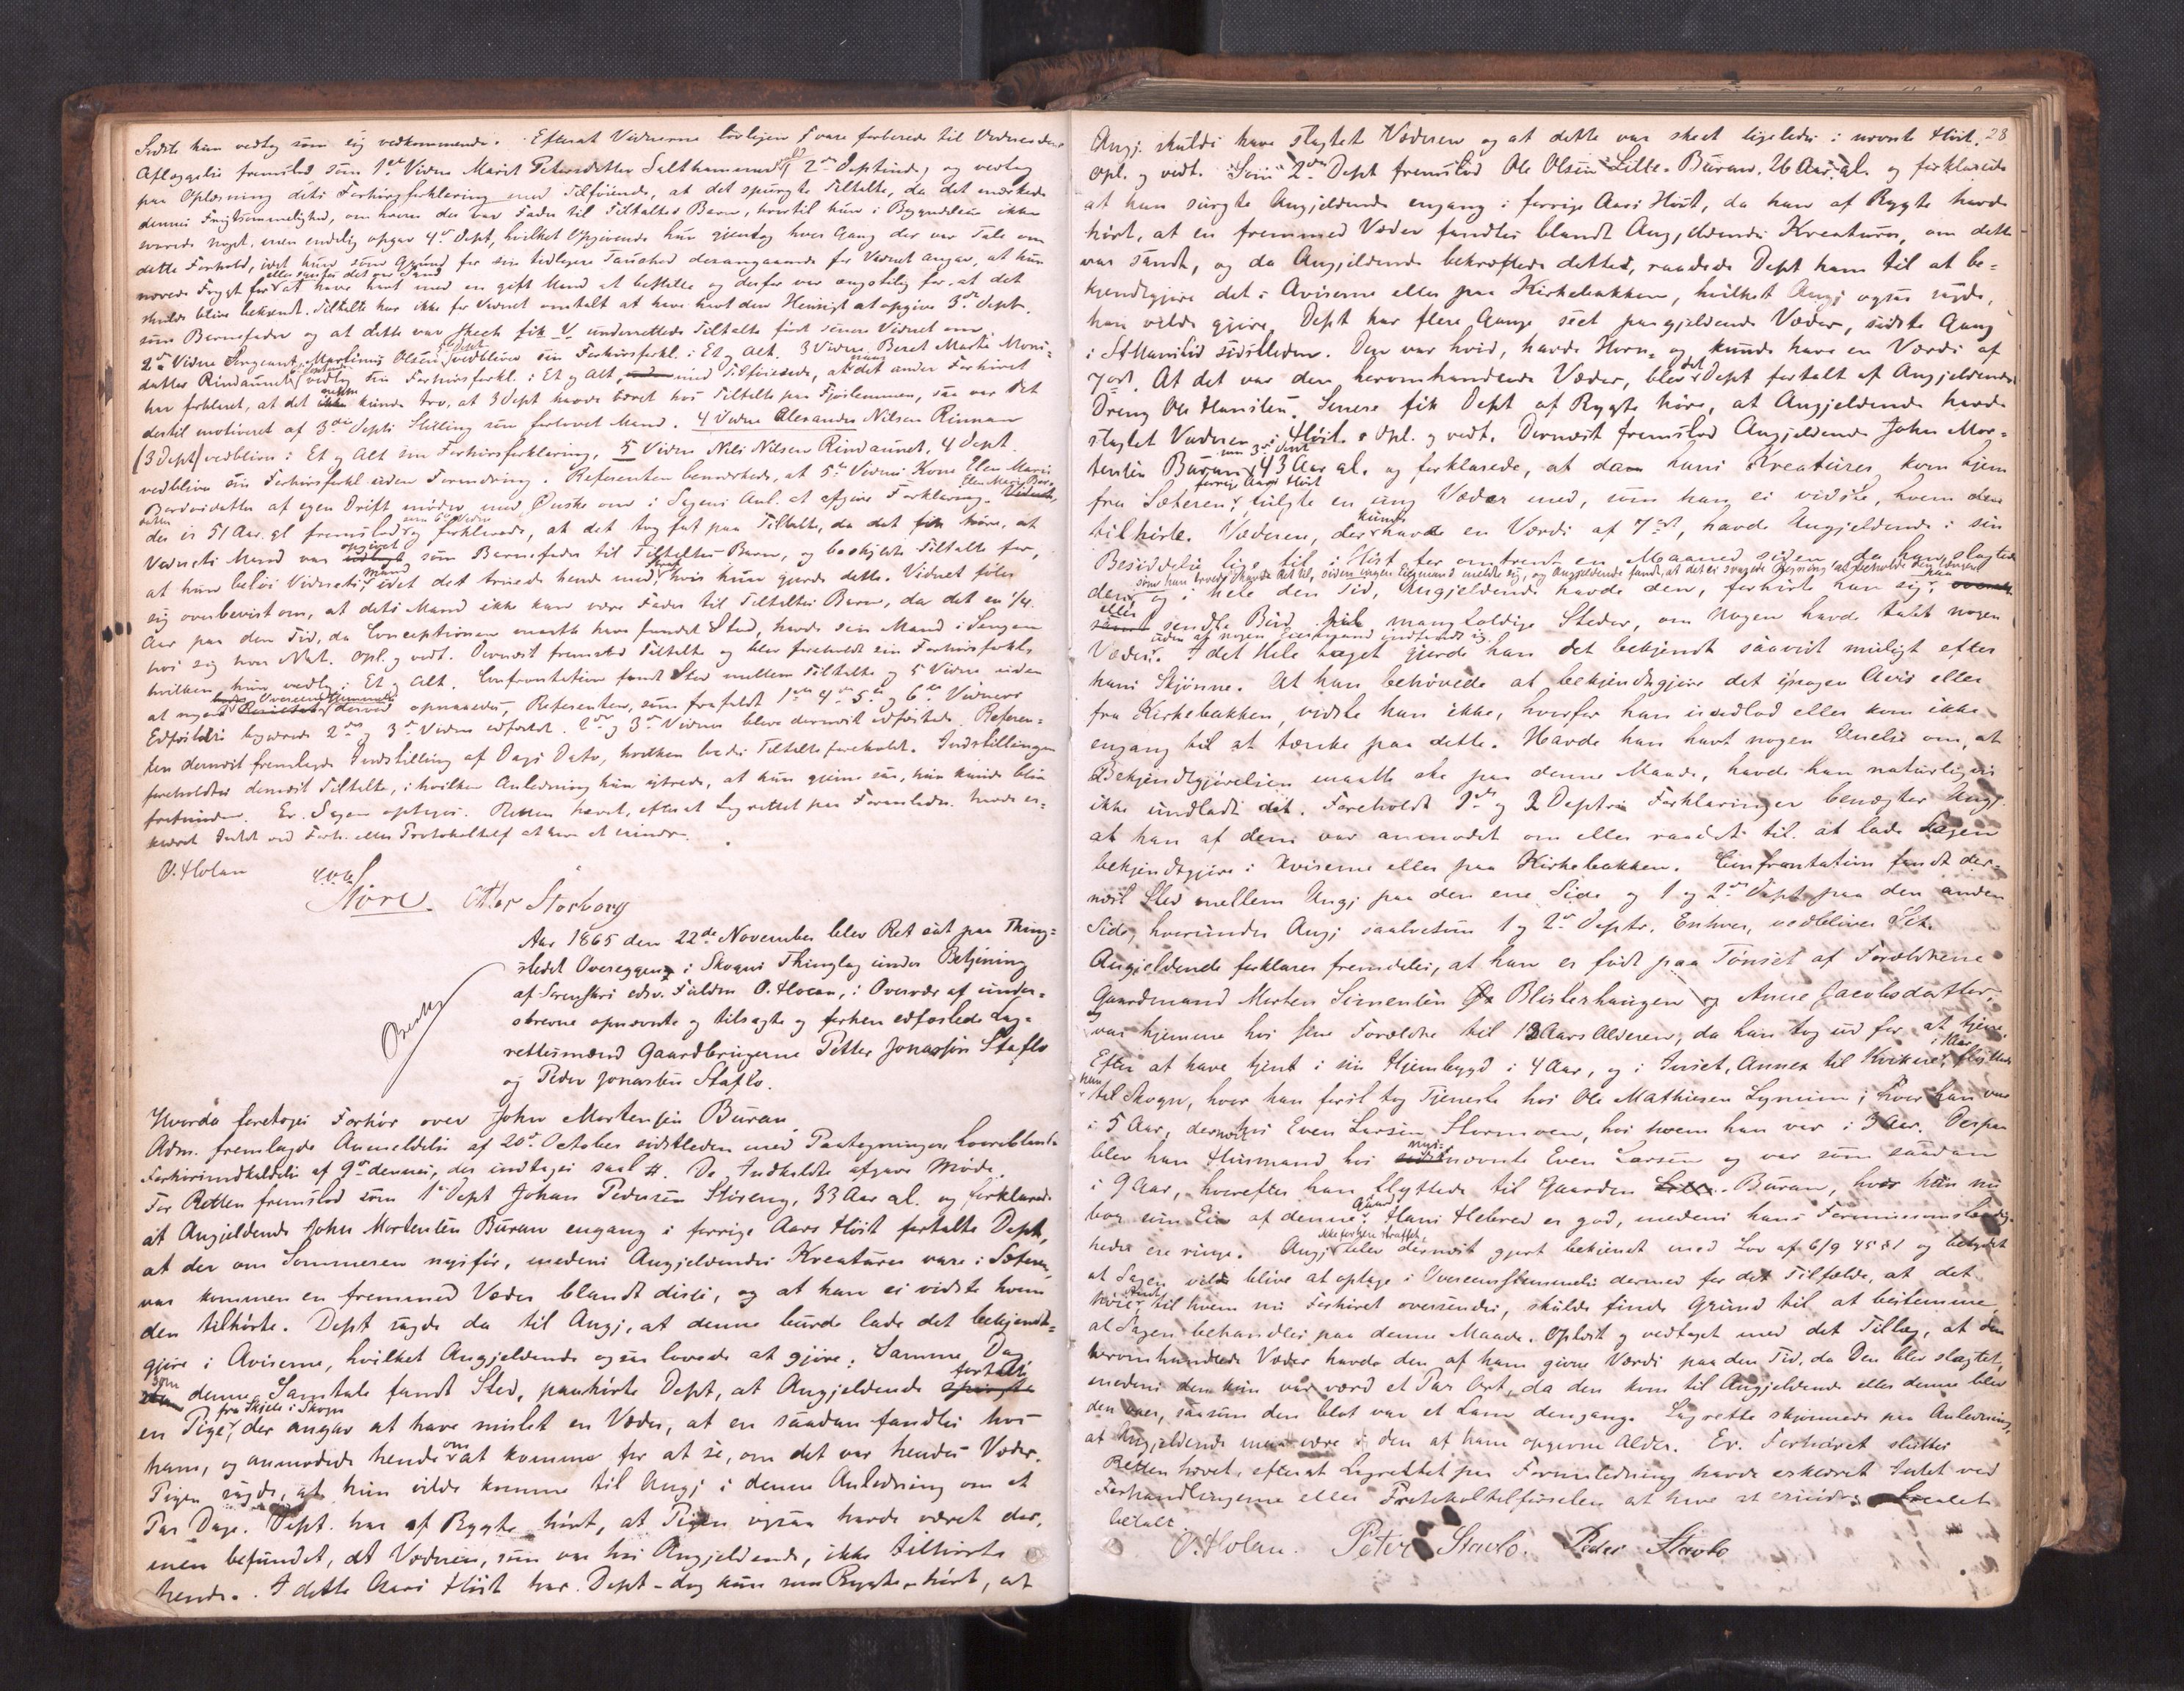 Sidste hun vedtog som sig vedkommende. Efterat Vidnerne lovligen vare forberede til Vidnesbyrds
Aflæggelse fremstod som 1ste Vidne Marit Petersdatter Salthammer, 2den Deptinde, og vedtog
paa Oplæsning dets Forhørsforklaring med Tilføiende, at det spurgte Tiltalte, da det mærkede
dennes Frugtsommelighed, om hvem der var Fader til Tiltaltes Barn, hvortil hun i Begyndelsen ikke
svarede noget, men endelig opgav 4de Dept, hvilket Opgivende hun gjentog hver Gang der var Tale om
dette Forhold, idet hun som Grund for sin tidligere Taushed derangaaende for Vidnet angav, at hun
nærede Frygt for at have havt med en gift Mand at bestille og derfor var ængstelig for at det
skulde blive bekjendt. Tiltalte har ikke for Vidnet omtalt at have havt den Hensigt at opgive 3de Dept.
som Barnefader og at dette var skeet fik underrettede Tiltalte først senere Vidnet om
2det Vidne Sergeant Martinus Olsen vedbliver sin Forhørsforkl. i Et og Alt. 3 Vidne Beret Marta Moni-
datter Rindaunet vedtog sin Forhørsforkl. i Et og Alt, med Tilføiende, at naar det under Forhøret
har forklaret, at det kunde tro, at 3 Dept havde været hos Tiltalte paa Fjøslemmen, saa var det
dertil motiveret af 3die Depts Stilling som forlovet Mand. 4 Vidne Alexander Nilsen Rinnan
(3 Dept) vedbliver i Et og Alt sin Forhørsforklaring, 5 Vidne Nils Nilsen Rindaunet, 4 Dept
vedbliver sin Forhørsforkl uden Forandring. Referenten bemærkede, at 5te Vidnes Kone Ellen Marie
Bardosdatter af egen Drift møder med Ønske om i Sagens Anl. at afgive Forklaring. Ellen Marie Bar-
datter der er 51 Aar gl fremstod som 6te Vidne og forklarede, at det tog fat paa Tiltalte, da det fik høre, at
Vidnets Mand var opgivet som Barnefader til Tiltaltes Barn, og beskyldte Tiltalte for,
at hun beløi Vidnets Mand, idet det truede hende med hvis hun gjorde dette. Vidnet føler
sig overbevist om, at dets Mand ikke kan være Fader til Tiltaltes Barn, da det en 1/4
Aar paa den Tid, da Conceptionen maatte have fundet Sted, havde sin Mand i Sengen
hos sig hver Nat. Opl. og vedt. Dernæst fremstod Tiltalte og blev foreholdt sin Forhørsforkl,
hvilken hun vedtog i Et og Alt. Confrontation fandt Sted mellem Tiltalte og 5 Vidne uden
at nogen Overensstemmelse derved opnaaedes, Referenten, som frafaldt 1ste 4de 5te og 6te Vidners
Edfæstelse begjærede 2det og 3die Vidne edfæstet. 2det og 3die Vidne bleve dernæst edfæstede. Referen-
ten dernæst fremlagde Indstilling af Dags Dato, hvilken bedes Tiltalte foreholdt. Indstillingen
foreholdtes dernæst Tiltalte, i hvilken Anledning hun ytrede, at hun gjerne saa, hun kunde blive
frifunden. Er. Sagen optages. Retten hævet, efterat Lagrettet paa Foranledn. havde er-
klæret Intet ved Forh. eller Protokoltilf at have at erindre.
O. Holan
Støre. Otter Storborg
Aar 1865 den 22de November blev Ret sat paa Thing-
stedet Overeggen i Skogns Thinglag under Betjening
af Sorenskri edsv. Fuldm O. Holan, i Overvær af under-
skrevne opnævnte og tilsagte og forhen edfæstede Lag-
rettesmænd Gaardbrugerne Petter Jonassen Staflo
og Peder Jonassen Staflo.
Hvorda foretoges Forhør over John Mortensen Buran.
Adm. fremlagde Anmeldelse af 20de October sidstleden med Paategninger hvoriblandt
Forhørsindkaldelse af 9de dennes, der indtages saal. #. De Indkaldte afgave Møde.
For Retten fremstod som 1ste Dept Johan Pedersen Støseng, 33 Aar gl. og forklarede
at Angjeldende John Mortensen Buran engang i forrige Aars Høst fortalte Dept,
at der om Sommeren nysfør, medens Angjeldendes Kreaturer vare i Sæteren,
var kommen en fremmed Væder blandt disse, og at han ei vidste hvem
den tilhørte. Dept sagde da til Angj, at denne burde lade det bekjendt-
gjøre i Aviserne, hvilket Angjeldende ogsaa lovede at gjøre. Samme Dag
som denne Samtale fandt Sted, paahørte Dept, at Angjeldende fortalte
en Pige, fra Skjele i Skogn der angav at have mistet en Væder, at en saadan fandtes hos
ham, og anmodede hende om at komme for at se, om det var hendes Væder.
Pigen sagde, at hun vilde komme til Angj i denne Anledning om et
Par Dage. Dept. har af Rygte hørt, at Pigen ogsaa havde været der,
men befundet, at Væderen, som var hos Angjeldende, ikke tilhørte
hende. I dette Aars Høst har Dept - dog kun som Rygte - hørt, at
28
Angj. skulde have slagtet Væderen og at dette var skeet ligeledes i nævnte Høst.
Opl. og vedt. Som 2den Dept fremstod Ole Olsen Lille-Buran, 26 Aar gl. og forklarede
at han spurgte Angjeldende engang i forrige Aars Høst, da han af Rygte havde
hørt, at en fremmed Væder fandtes blandt Angjeldendes Kreaturer, om dette
var sandt, og da Angjeldende bekræftede dette, raadede Dept ham til at be-
kjendtgjøre det i Aviserne eller paa Kirkebakken, hvilket Angj ogsaa sagde,
han vilde gjøre. Dept har flere Gange seet paagjeldende Væder, sidste Gang
i StHanstid sidstleden. Den var hvid, havde Horn, og kunde have en Værdi af
7 ort. At det var den heromhandlende Væder, blev det Dept fortalt af Angjeldendes
Dreng Ole Hansen. Senere fik Dept af Rygte høre, at Angjeldende havde
slagtet Væderen i Høst. Opl. og vedt. Dernæst fremstod Angjeldende John Mor-
tensen Buran som 3de Dept 43 Aar gl. og forklarede, at da hans Kreaturer kom hjem
fra Sæteren forrige Aars Høst fulgte en ung Væder med, som han ei vidste, hvem den
tilhørte. Væderen, der kunde have en Værdi af 7 ort, havde Angjeldende i sin
Besiddelse lige til i Høst for omtrent en Maaned siden, da han slagtede
den, som han troede havde Ret til, siden ingen Eiermand meldte sig, og Angjeldende fandt, at det ei svarede Regning at beholde den længer
og i hele den Tid, Angjeldende havde den, forhørte han sig paa
eller sendte Bud til mangfoldige Steder, om Nogen havde tabt nogen
Væder, uden at nogen Eiermand indfandt sig. I det Hele taget gjorde han det bekjendt saavidt muligt efter
hans Skjønne. At han behøvede at bekjendtgjøre det i nogen Avis eller
fra Kirkebakken, vidste han ikke, hvorfor han undlod eller kom ikke
engang til at tænke paa dette. Havde han havt nogen Anelse om, at
Bekjendtgjørelsen maatte ske paa denne Maade, havde han naturligvis
ikke undladt det. Foreholdt 1ste og 2 Depts Forklaringer benægter Angj.
at han af dem var anmodet om eller raadet til at lade Sagen
bekjendtgjøre i Aviserne eller paa Kirkebakken. Confrontation fandt der-
næst Sted mellem Angj paa den ene Side og 1 og 2den Dept paa den anden
Side, hverunder Angj saavelsom 1 og 2de Depts. Enhver, vedbliver Sit.
Angjeldende forklarer fremdeles, at han er født paa Tønset af Forældrene
Gaardmand Morten Simensen Blesterhaugen og Anne Jacobsdatter,
var hjemme hos sine Forældre til 13 Aars Alderen, da han tog ud for at tjene.
Efter at have tjent i sin Hjembygd i 4 Aar, og i Inset, Annex til Kvikne, i 1 Aar, flyttede
han til Skogn, hvor han først tog Tjeneste hos Ole Mathiesen Lynum, hvor han var
i 5 Aar, dernæst hos Even Larsen Stormoen, hos hvem han var i 3 Aar. Derpaa
blev han Husmand hos nysnævnte Even Larsen og var som saadan
i 9 Aar, hvorefter han flyttede til Gaarden Buran, hvor han nu
bor som Eier af denne Gaard. Hans Helbred er god, medens hans Formuesomstændig-
heder ere ringe. Angj ikke forhen straffet, blev dernæst gjort bekjendt med Lov af 6/9 45 § 1 og betydet
at Sagen vilde blive at optage i Overensstemmelse dermed for det Tilfælde, at det
høie Amt, til hvem nu Forhøret oversendes, skulde finde Grund til at bestemme,
at Sagen behandles paa denne Maade. Oplæst og vedtaget med det Tillæg, at den
heromhandlede Væder havde den af ham givne Værdi paa den Tid, da Den blev slagtet,
medens den kun var værd et Par Ort, da den kom til Angjeldende eller denne blev
den vaer, saasom den blot var et Lam dengang. Lagrette skjønnede paa Anledning,
at Angjeldende maa være i den af ham opgivne Alder. Er. Forhøret sluttes
Retten hævet, efterat Lagrettet paa Foranledning havde erklæret Intet ved
Forhandlingerne eller Protokoltilførselen at have at erindre. Localet
betalt
O. Holan. Peter Stavlo. Peder Stavlo